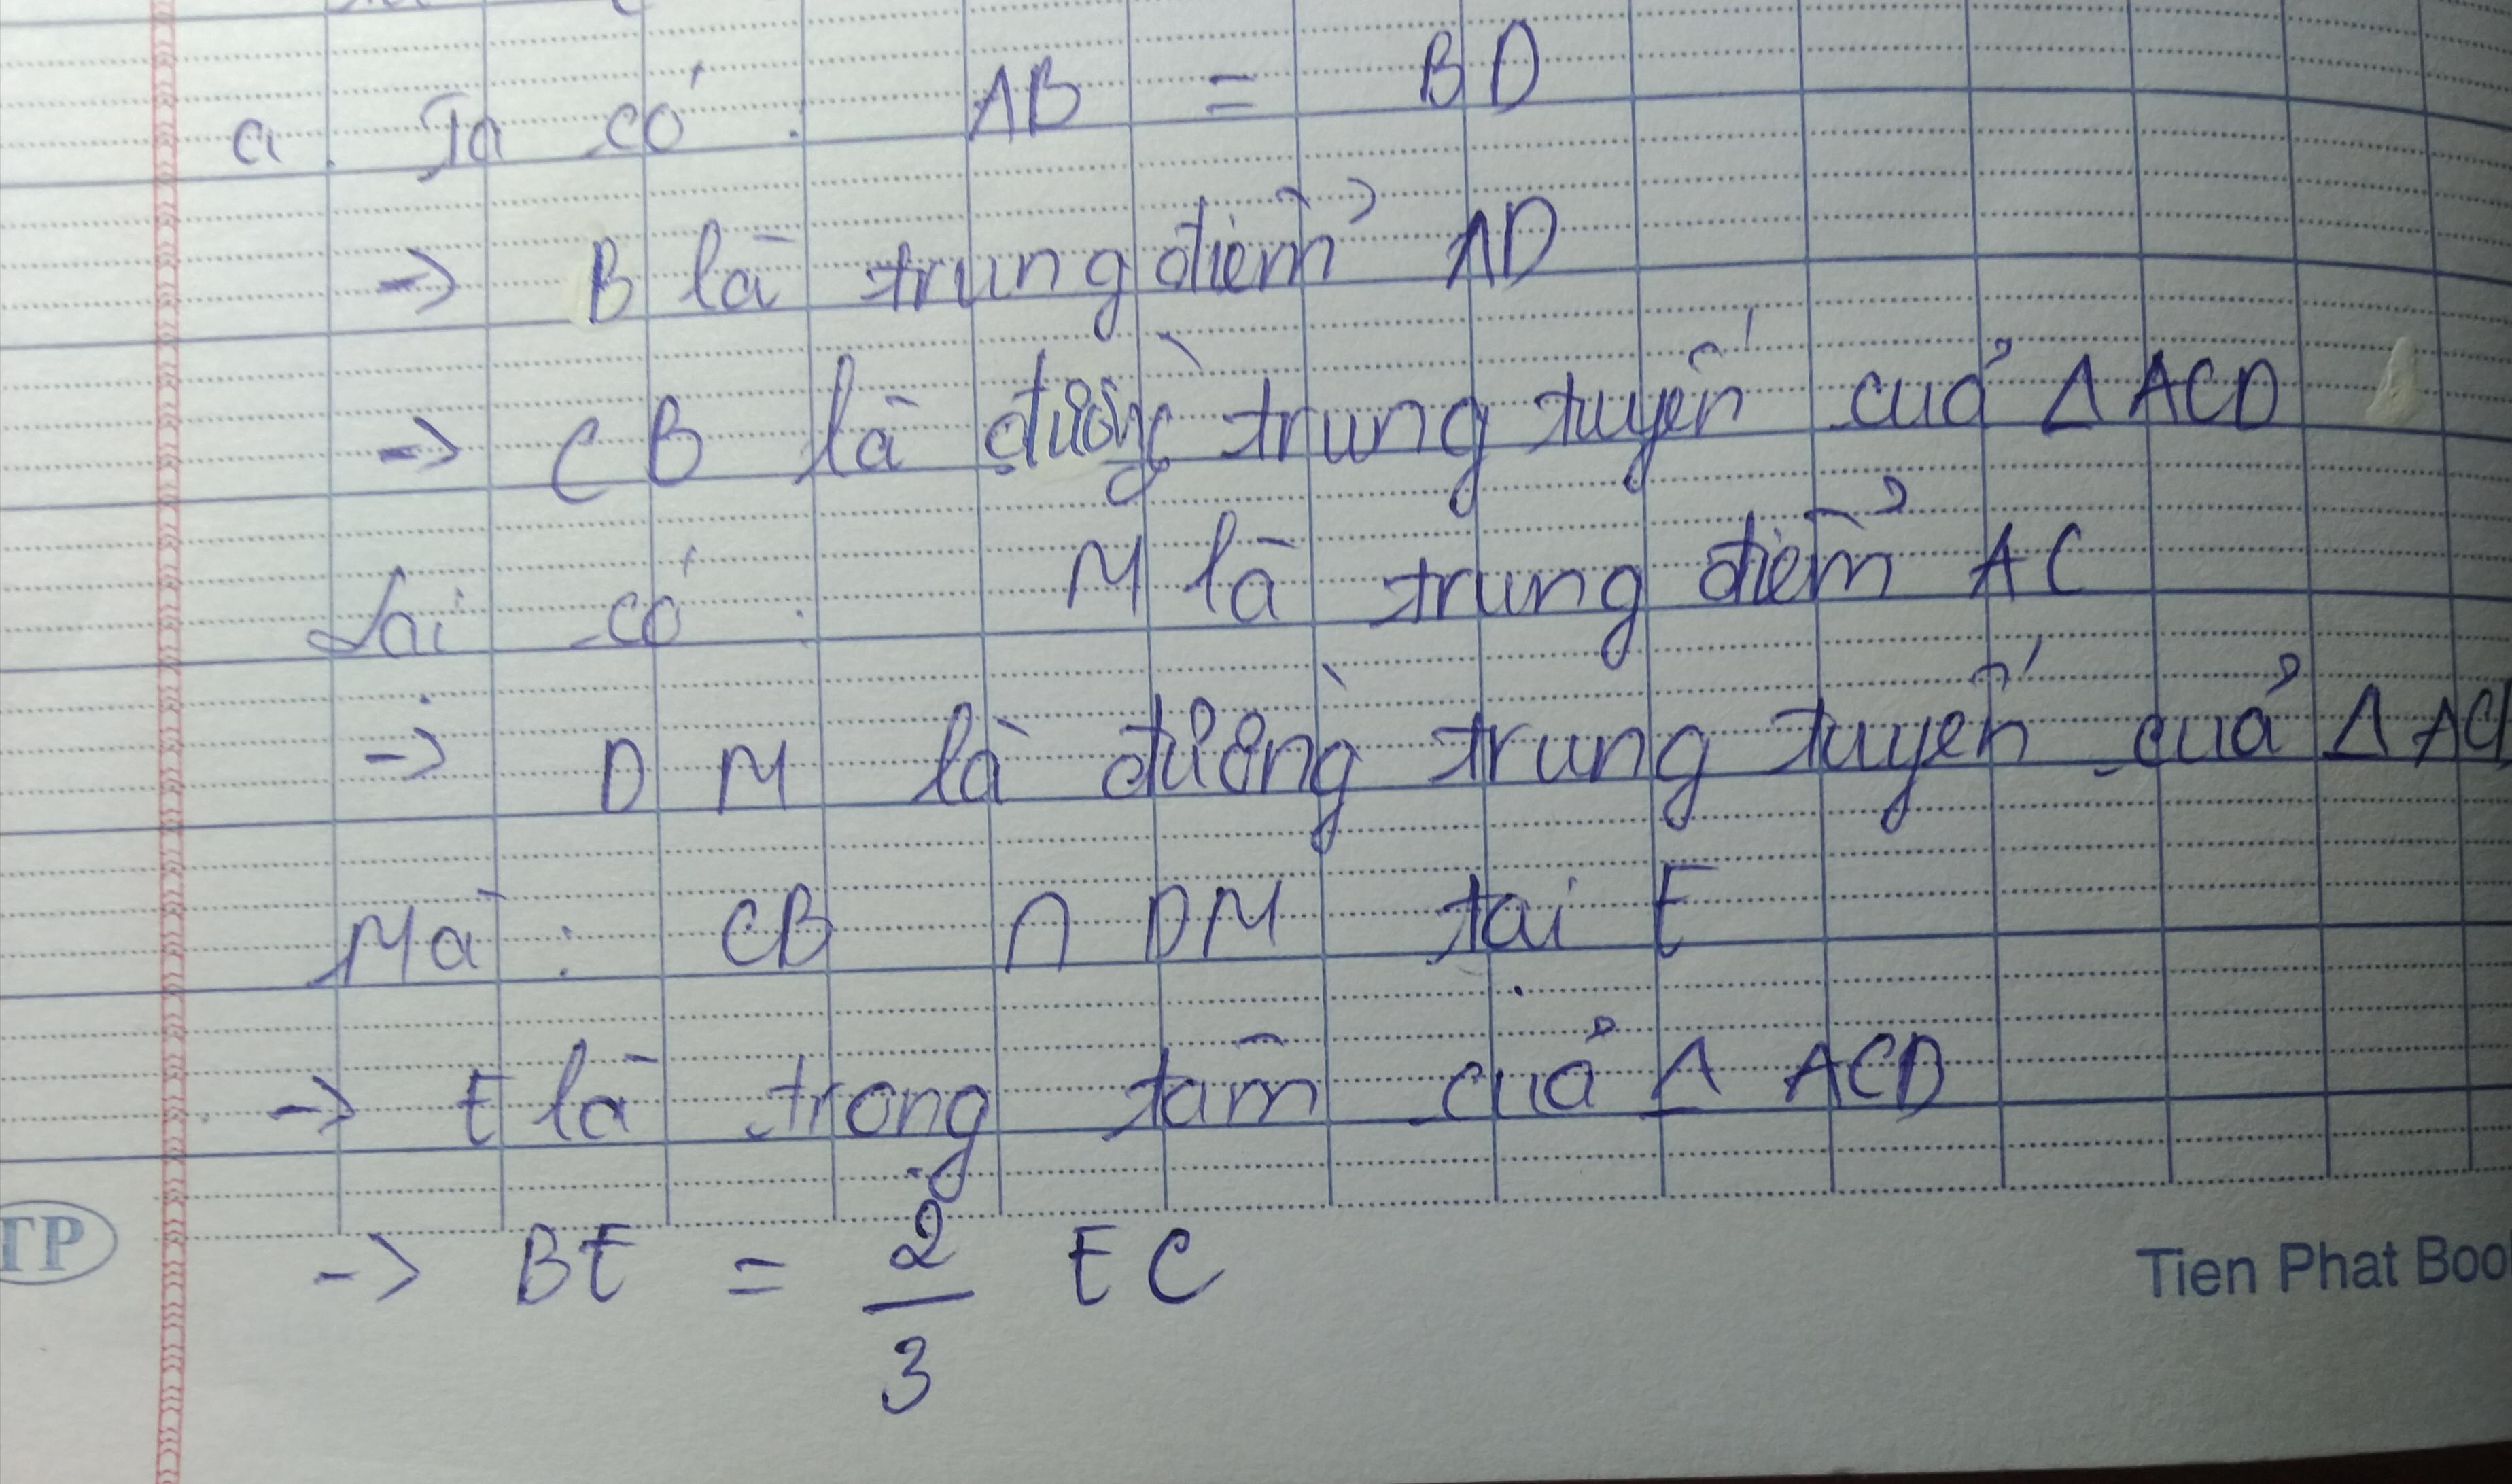 a. Ta có: AB = BD
-> B là trung điểm AD
-> CB là đường trung tuyến của Δ ACD
Lại có: M là trung điểm AC
-> DM là đường trung tuyến của Δ AC
Mà: CB ∩ DM tại E
-> E là trọng tâm của Δ ACD
-> BE = 2/3 EC
TP
Tien Phat Boo